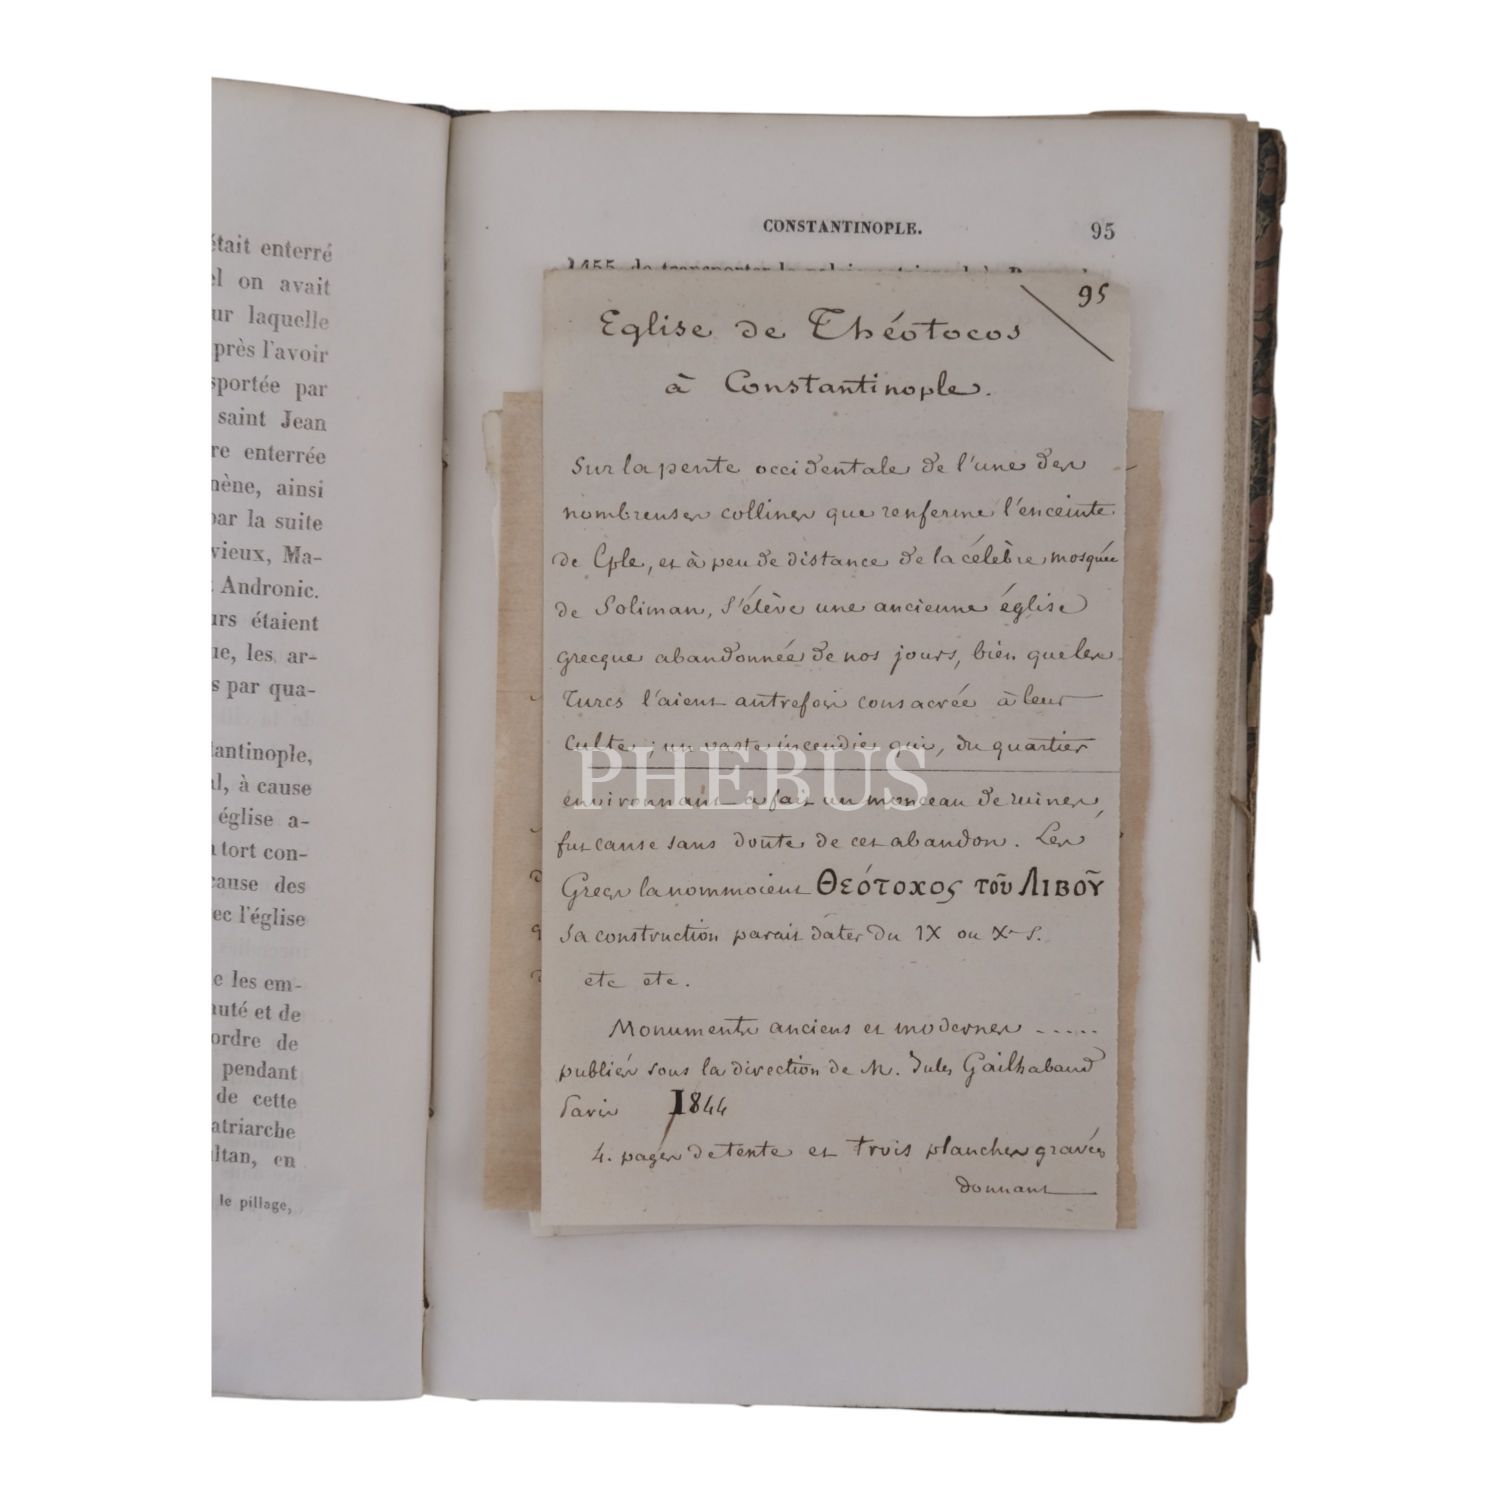 était enterré
el on avait
ur laquelle
près l'avoir
sportée par
saint Jean
re enterrée
nène, ainsi
par la suite
vieux, Ma-
Andronic.
urs étaient
ue, les ar-
s par qua-
tantinople,
al, à cause
église a-
tort con-
cause des
ec l'église
e les em-
auté et de
ordre de
pendant
de cette
atriarche
ltan, en
le pillage,
CONSTANTINOPLE. 95
1455, de transporter le
95
Eglise de Théotocos
à Constantinople.
Sur la pente occidentale de l'une des
nombreuses collines que renferme l'enceinte
de Cple, et à peu de distance de la célèbre mosquée
de Soliman, s'élève une ancienne église
grecque abandonnée de nos jours, bien que les
Turcs l'aient autrefois consacrée à leur
culte; un vaste incendie qui, du quartier
environnant a fait un monceau de ruines,
fut cause sans doute de cet abandon. Les
Grecs la nommoient Θεότοχος τοῦ Λιβοῦ
Sa construction parait dater du IX ou Xe S.
etc etc.
Monuments anciens et modernes .....
publiés sous la direction de M. Jules Gailhabaud
Paris 1844
4. pages de texte et trois planches gravées
donnant
PHEBUS